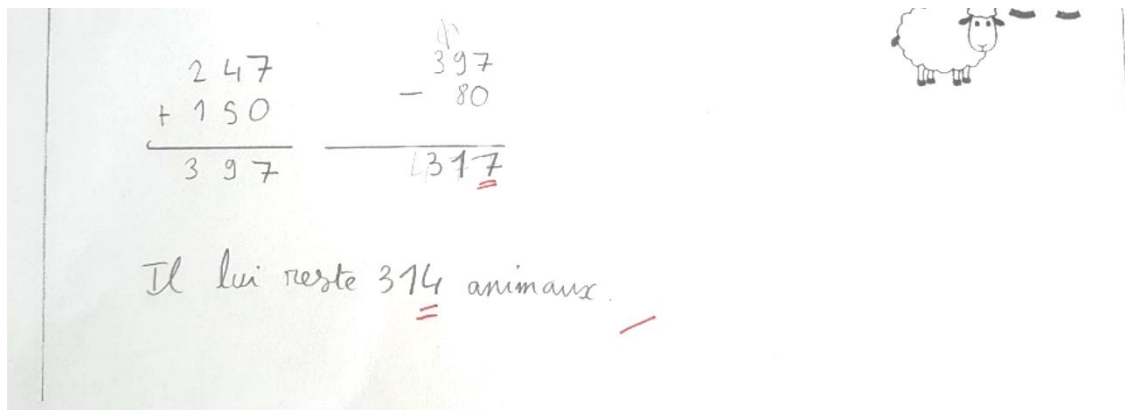 247
+ 150
397
397
- 80
317
Il lui reste 314 animaux.